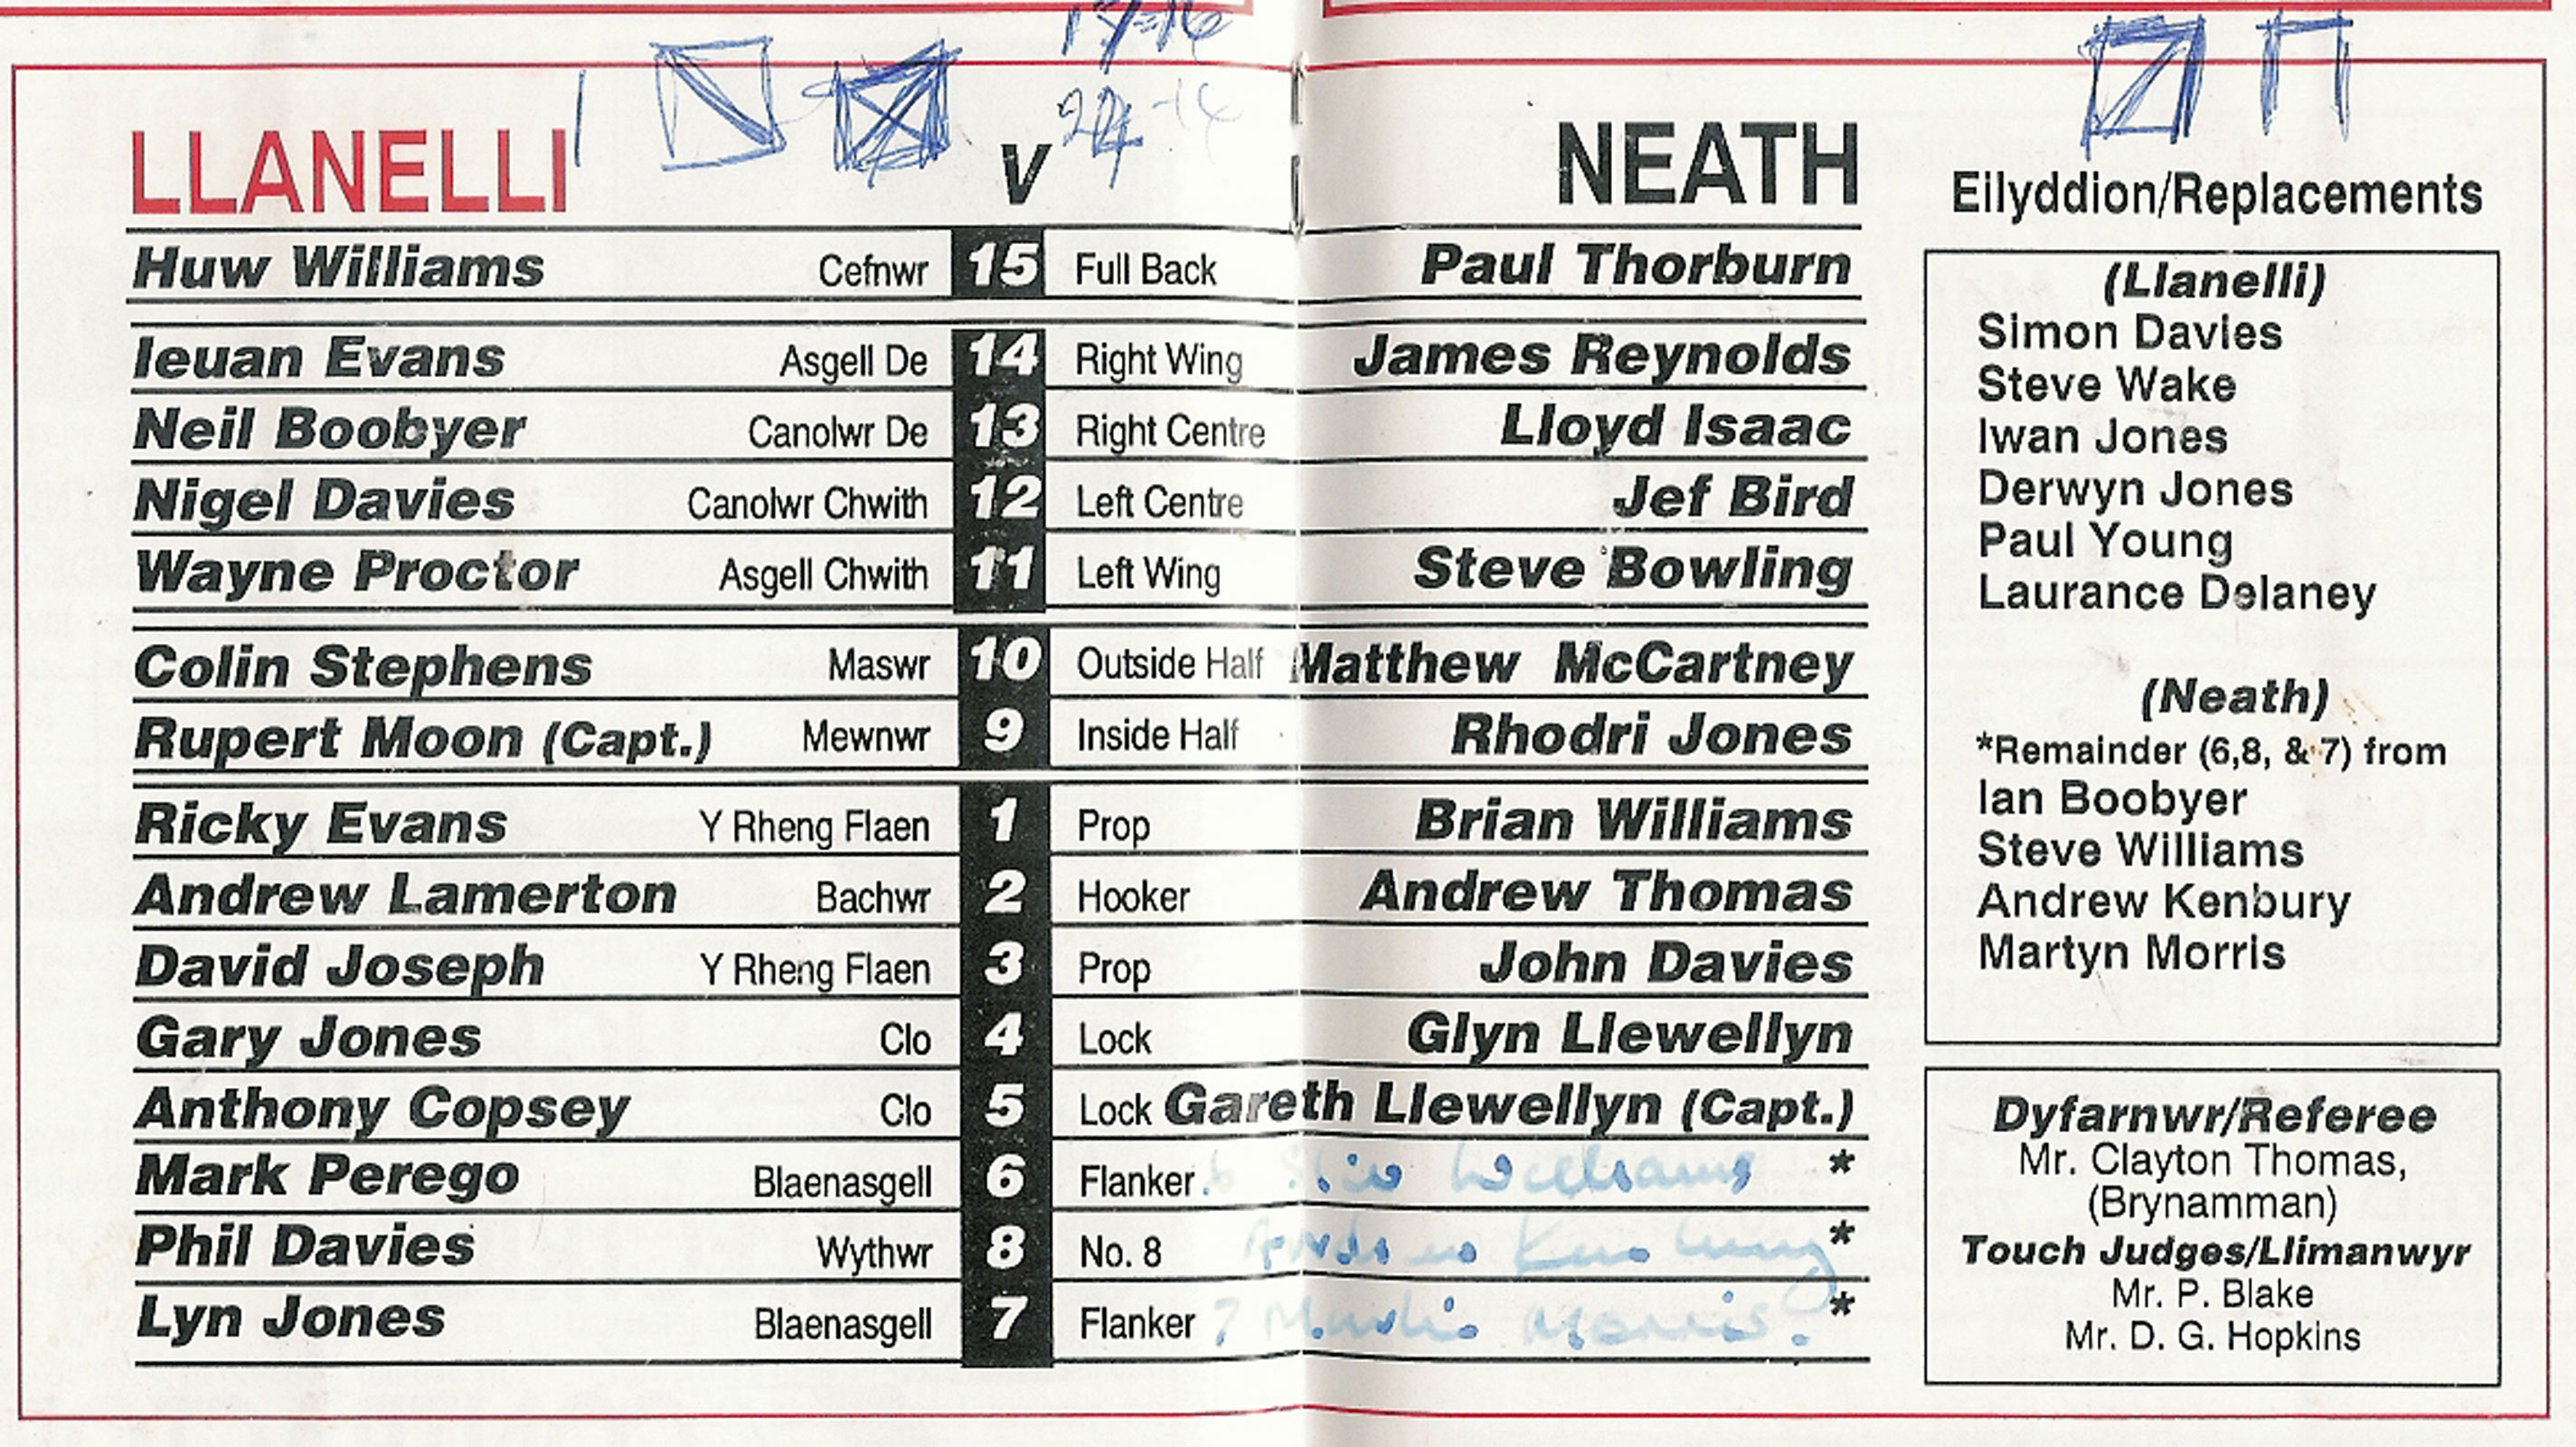 17-16
24-14
LLANELLI V NEATH
Huw Williams Cefnwr 15 Full Back Paul Thorburn
Ieuan Evans Asgell De 14 Right Wing James Reynolds
Neil Boobyer Canolwr De 13 Right Centre Lloyd Isaac
Nigel Davies Canolwr Chwith 12 Left Centre Jef Bird
Wayne Proctor Asgell Chwith 11 Left Wing Steve Bowling
Colin Stephens Maswr 10 Outside Half Matthew McCartney
Rupert Moon (Capt.) Mewnwr 9 Inside Half Rhodri Jones
Ricky Evans Y Rheng Flaen 1 Prop Brian Williams
Andrew Lamerton Bachwr 2 Hooker Andrew Thomas
David Joseph Y Rheng Flaen 3 Prop John Davies
Gary Jones Clo 4 Lock Glyn Llewellyn
Anthony Copsey Clo 5 Lock Gareth Llewellyn (Capt.)
Mark Perego Blaenasgell 6 Flanker 6 Williams *
Phil Davies Wythwr 8 No. 8 Andrew Kenbury *
Lyn Jones Blaenasgell 7 Flanker 7 Morris. *
Eilyddion/Replacements
(Llanelli)
Simon Davies
Steve Wake
Iwan Jones
Derwyn Jones
Paul Young
Laurance Delaney
(Neath)
*Remainder (6,8, & 7) from
Ian Boobyer
Steve Williams
Andrew Kenbury
Martyn Morris
Dyfarnwr/Referee
Mr. Clayton Thomas,
(Brynamman)
Touch Judges/Llimanwyr
Mr. P. Blake
Mr. D. G. Hopkins